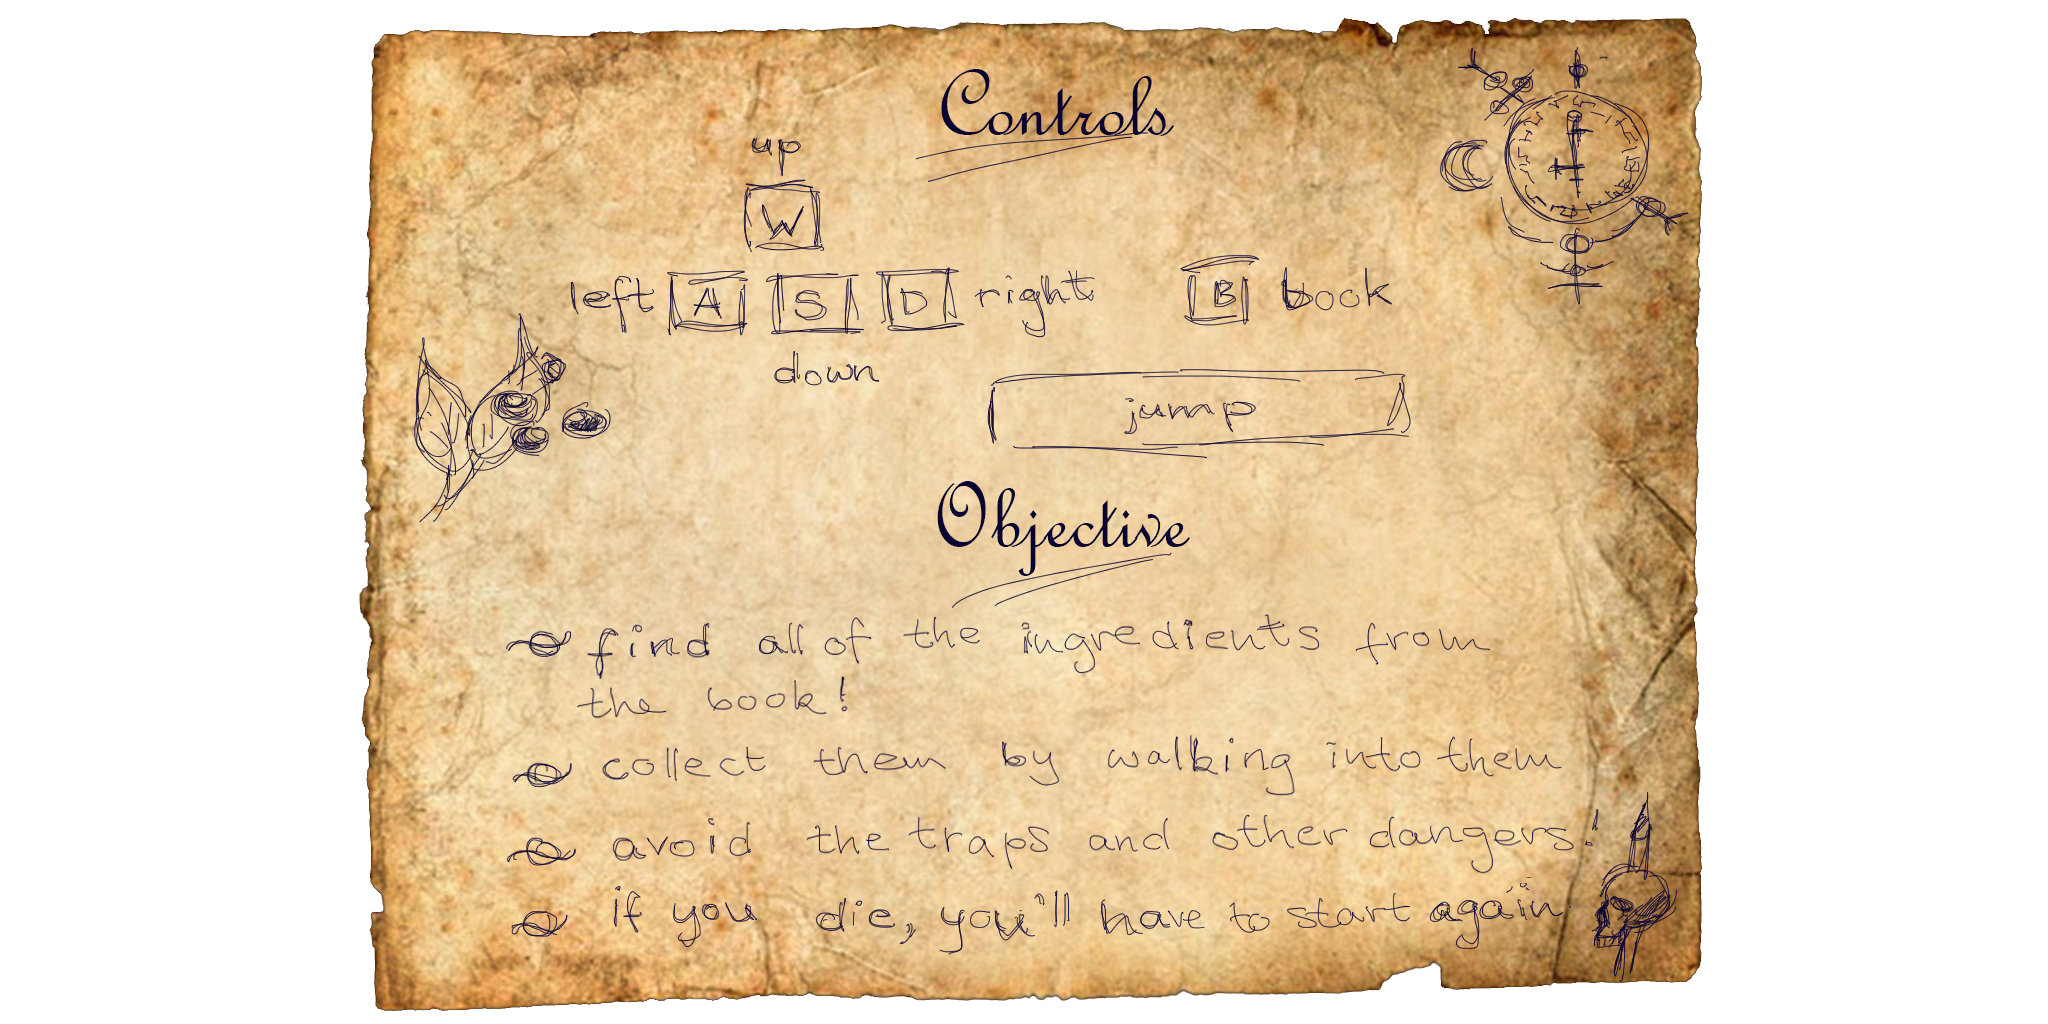 Controls
up
W
left A S D right B book
down
jump
Objective
find all of the ingredients from
the book!
collect them by walking into them
avoid the traps and other dangers!
if you die, you'll have to start again